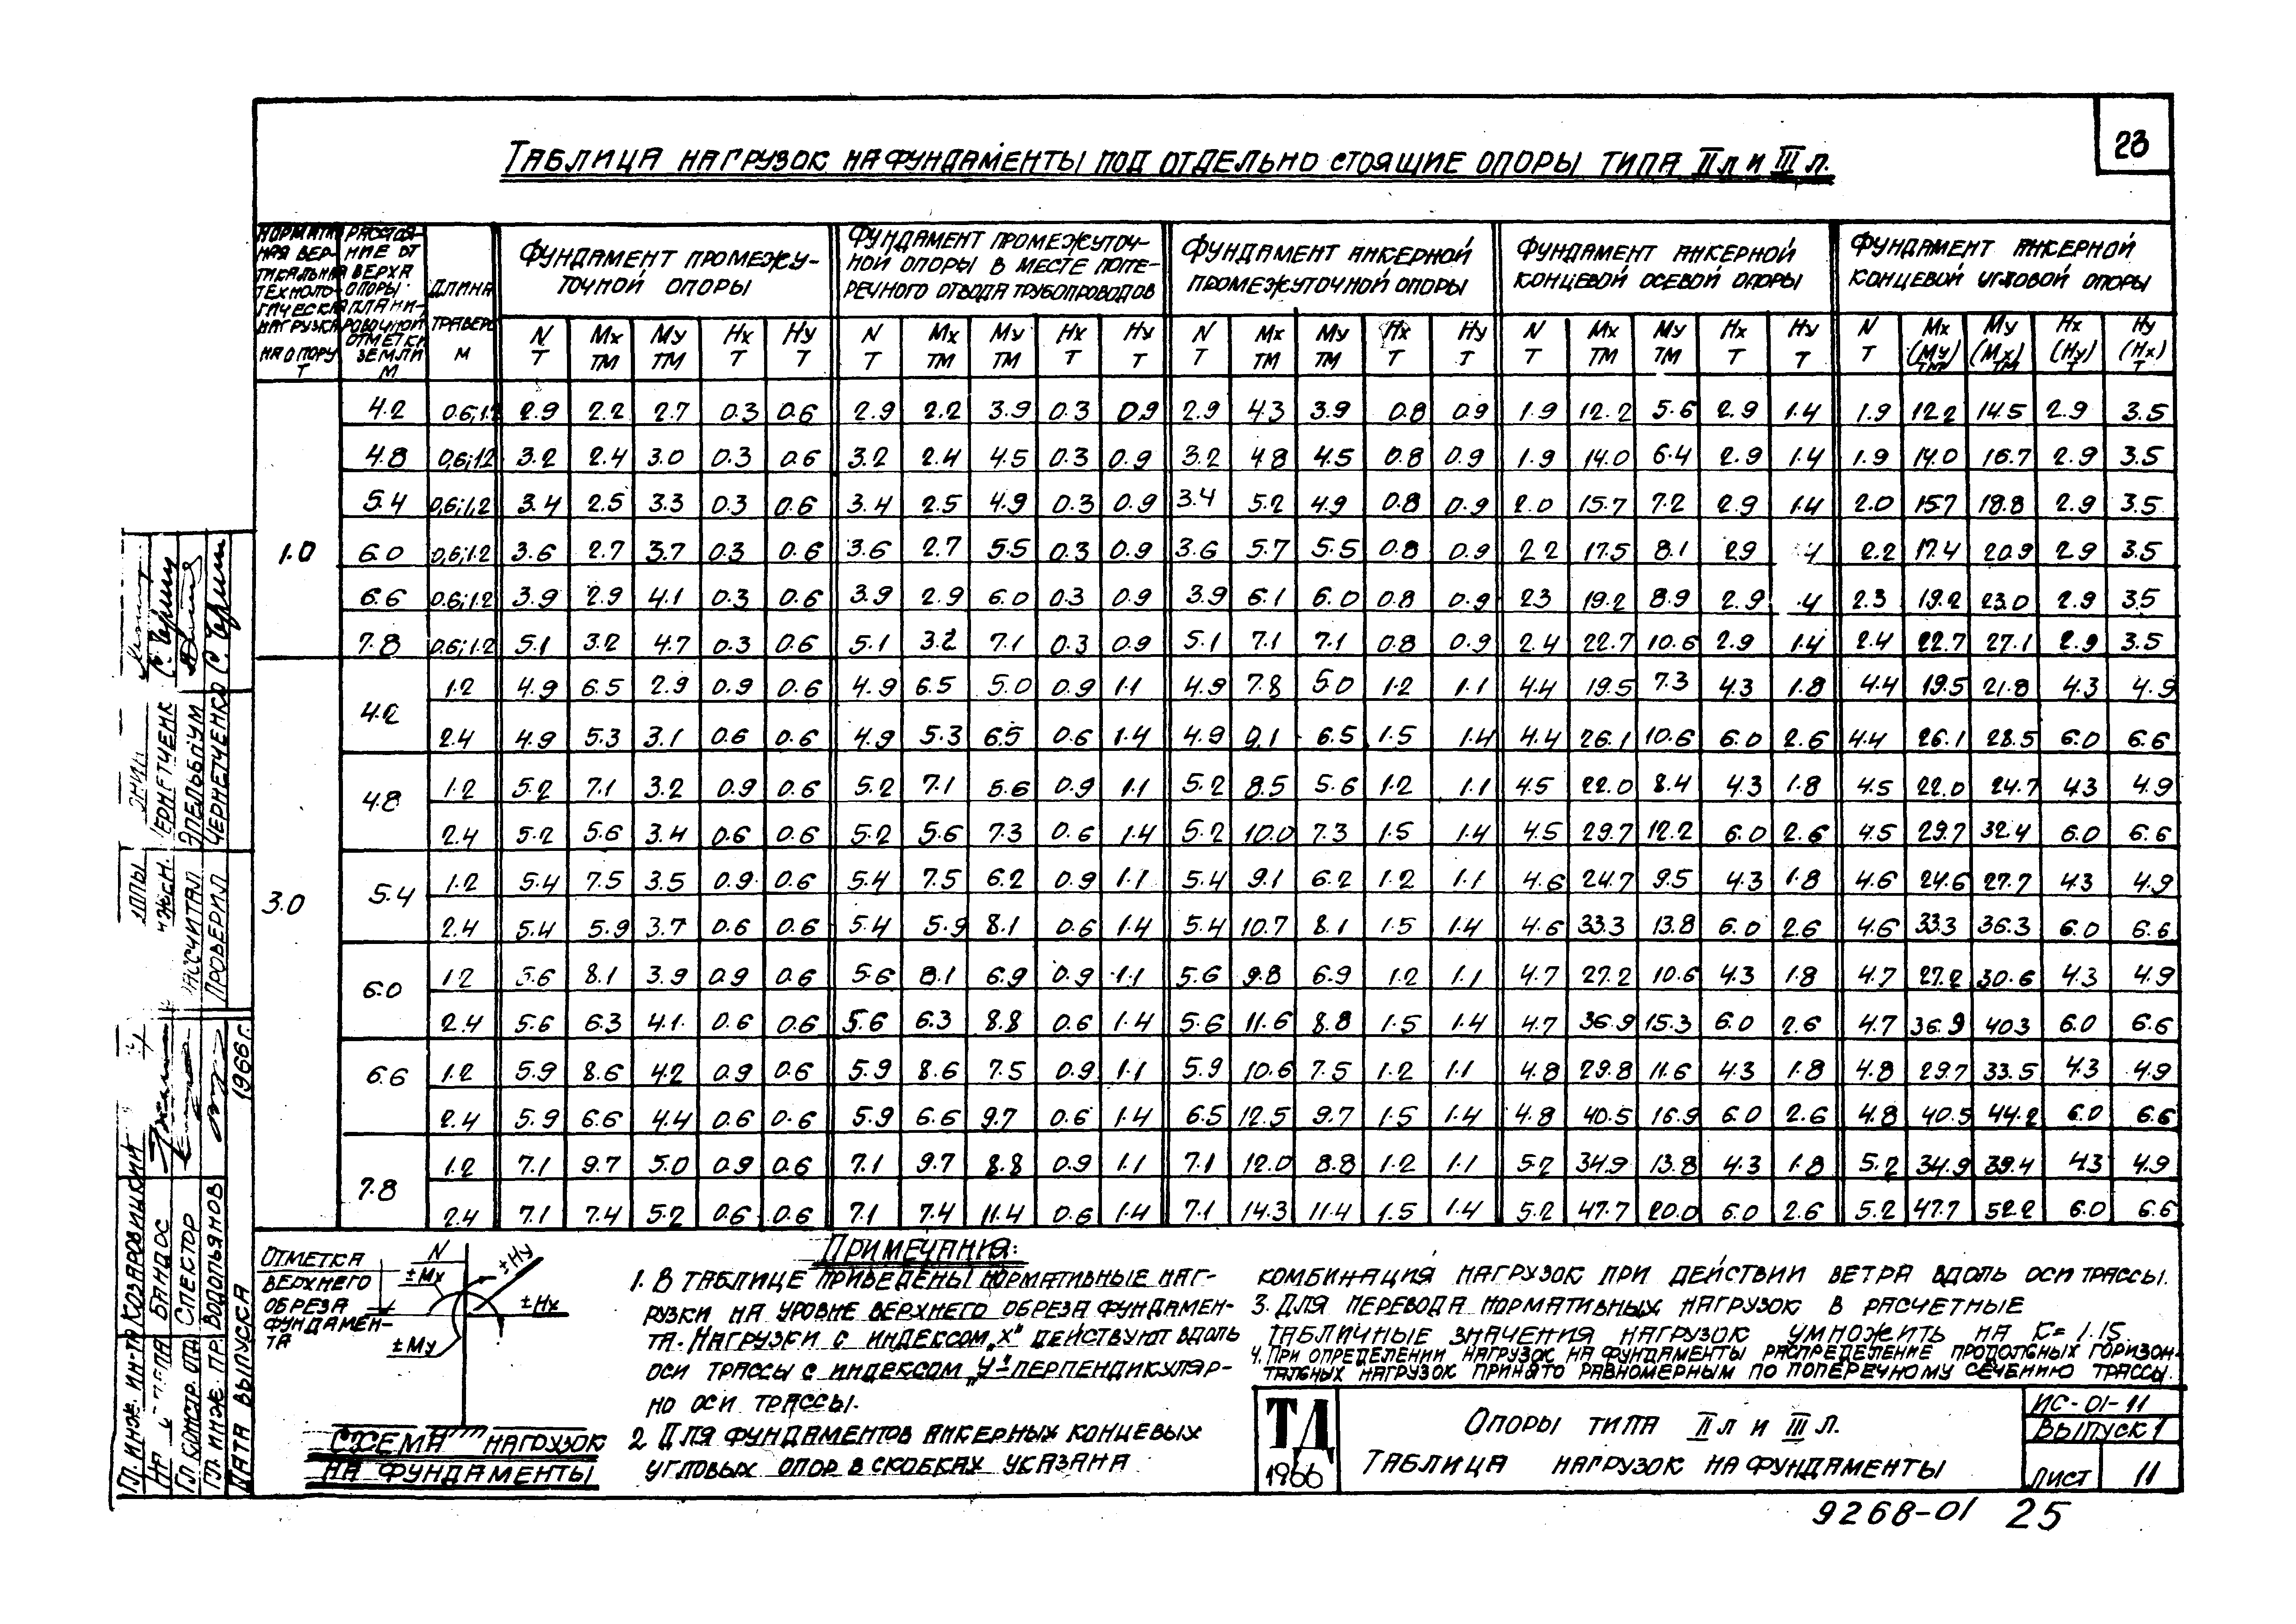 23
ТАБЛИЦА НАГРУЗОК НА ФУНДАМЕНТЫ ПОД ОТДЕЛЬНО СТОЯЩИЕ ОПОРЫ ТИПА IIЛ И IIIЛ.
НОРМАТИВ-
НАЯ ВЕР-
ТИКАЛЬНАЯ
ТЕХНОЛО-
ГИЧЕСКАЯ
НАГРУЗКА
НА ОПОРУ
Т
РАССТОЯ-
НИЕ ОТ
ВЕРХА
ОПОРЫ
ПЛАНИ-
РОВОЧНОЙ
ОТМЕТКИ
ЗЕМЛИ
М
ДЛИНА
ТРАВЕРС
М
ФУНДАМЕНТ ПРОМЕЖУ-
ТОЧНОЙ ОПОРЫ
ФУНДАМЕНТ ПРОМЕЖУТОЧ-
НОЙ ОПОРЫ В МЕСТЕ ПОПЕ-
РЕЧНОГО ОТВОДА ТРУБОПРОВОДОВ
ФУНДАМЕНТ АНКЕРНОЙ
ПРОМЕЖУТОЧНОЙ ОПОРЫ
ФУНДАМЕНТ АНКЕРНОЙ
КОНЦЕВОЙ ОСЕВОЙ ОПОРЫ
ФУНДАМЕНТ АНКЕРНОЙ
КОНЦЕВОЙ УГЛОВОЙ ОПОРЫ
N Mx My Hx Hy N Mx My Hx Hy N Mx My Hx Hy N Mx My Hx Hy N Mx My Hx Hy
Т ТМ ТМ Т Т Т ТМ ТМ Т Т Т ТМ ТМ Т Т Т ТМ ТМ Т Т Т (My) (Mx) (Hy) (Hx)
ТМ ТМ Т Т
1.0
4.2 0.6;1.2 2.9 2.2 2.7 0.3 0.6 2.9 2.2 3.9 0.3 0.9 2.9 4.3 3.9 0.8 0.9 1.9 12.2 5.6 2.9 1.4 1.9 12.2 14.5 2.9 3.5
4.8 0,6;1.2 3.2 2.4 3.0 0.3 0.6 3.2 2.4 4.5 0.3 0.9 3.2 4.8 4.5 0.8 0.9 1.9 14.0 6.4 2.9 1.4 1.9 14.0 16.7 2.9 3.5
5.4 0,6;1.2 3.4 2.5 3.3 0.3 0.6 3.4 2.5 4.9 0.3 0.9 3.4 5.2 4.9 0.8 0.9 2.0 15.7 7.2 2.9 1.4 2.0 15.7 18.8 2.9 3.5
6.0 0,6;1.2 3.6 2.7 3.7 0.3 0.6 3.6 2.7 5.5 0.3 0.9 3.6 5.7 5.5 0.8 0.9 2.2 17.5 8.1 2.9 4 2.2 17.4 20.9 2.9 3.5
6.6 0.6;1.2 3.9 2.9 4.1 0.3 0.6 3.9 2.9 6.0 0.3 0.9 3.9 6.1 6.0 0.8 0.9 2.3 19.2 8.9 2.9 .4 2.3 19.2 23.0 2.9 3.5
7.8 0.6;1.2 5.1 3.2 4.7 0.3 0.6 5.1 3.2 7.1 0.3 0.9 5.1 7.1 7.1 0.8 0.9 2.4 22.7 10.6 2.9 1.4 2.4 22.7 27.1 2.9 3.5
3.0
4.2 1.2 4.9 6.5 2.9 0.9 0.6 4.9 6.5 5.0 0.9 1.1 4.9 7.8 5.0 1.2 1.1 4.4 19.5 7.3 4.3 1.8 4.4 19.5 21.8 4.3 4.9
2.4 4.9 5.3 3.1 0.6 0.6 4.9 5.3 6.5 0.6 1.4 4.9 9.1 6.5 1.5 1.4 4.4 26.1 10.6 6.0 2.6 4.4 26.1 28.5 6.0 6.6
4.8 1.2 5.2 7.1 3.2 0.9 0.6 5.2 7.1 5.6 0.9 1.1 5.2 8.5 5.6 1.2 1.1 4.5 22.0 8.4 4.3 1.8 4.5 22.0 24.7 4.3 4.9
2.4 5.2 5.6 3.4 0.6 0.6 5.2 5.6 7.3 0.6 1.4 5.2 10.0 7.3 1.5 1.4 4.5 29.7 12.2 6.0 2.6 4.5 29.7 32.4 6.0 6.6
5.4 1.2 5.4 7.5 3.5 0.9 0.6 5.4 7.5 6.2 0.9 1.1 5.4 9.1 6.2 1.2 1.1 4.6 24.7 9.5 4.3 1.8 4.6 24.6 27.7 4.3 4.9
2.4 5.4 5.9 3.7 0.6 0.6 5.4 5.9 8.1 0.6 1.4 5.4 10.7 8.1 1.5 1.4 4.6 33.3 13.8 6.0 2.6 4.6 33.3 36.3 6.0 6.6
6.0 1.2 5.6 8.1 3.9 0.9 0.6 5.6 8.1 6.9 0.9 1.1 5.6 9.8 6.9 1.2 1.1 4.7 27.2 10.6 4.3 1.8 4.7 27.2 30.6 4.3 4.9
2.4 5.6 6.3 4.1 0.6 0.6 5.6 6.3 8.8 0.6 1.4 5.6 11.6 8.8 1.5 1.4 4.7 36.9 15.3 6.0 2.6 4.7 36.9 40.3 6.0 6.6
6.6 1.2 5.9 8.6 4.2 0.9 0.6 5.9 8.6 7.5 0.9 1.1 5.9 10.6 7.5 1.2 1.1 4.8 29.8 11.6 4.3 1.8 4.8 29.7 33.5 4.3 4.9
2.4 5.9 6.6 4.4 0.6 0.6 5.9 6.6 9.7 0.6 1.4 6.5 12.5 9.7 1.5 1.4 4.8 40.5 16.9 6.0 2.6 4.8 40.5 44.2 6.0 6.6
7.8 1.2 7.1 9.7 5.0 0.9 0.6 7.1 9.7 8.8 0.9 1.1 7.1 12.0 8.8 1.2 1.1 5.2 34.9 13.8 4.3 1.8 5.2 34.9 39.4 4.3 4.9
2.4 7.1 7.4 5.2 0.6 0.6 7.1 7.4 11.4 0.6 1.4 7.1 14.3 11.4 1.5 1.4 5.2 47.7 20.0 6.0 2.6 5.2 47.7 52.2 6.0 6.6
ОТМЕТКА
ВЕРХНЕГО
ОБРЕЗА
ФУНДАМЕН-
ТА
N
±Mx
±Hy
±Hx
±My
СХЕМА НАГРУЗОК
НА ФУНДАМЕНТЫ
ПРИМЕЧАНИЯ:
1. В ТАБЛИЦЕ ПРИВЕДЕНЫ НОРМАТИВНЫЕ НАГ-
РУЗКИ НА УРОВНЕ ВЕРХНЕГО ОБРЕЗА ФУНДАМЕН-
ТА. НАГРУЗКИ С ИНДЕКСОМ „X" ДЕЙСТВУЮТ ВДОЛЬ
ОСИ ТРАССЫ С ИНДЕКСОМ „У"-ПЕРПЕНДИКУЛЯР-
НО ОСИ ТРАССЫ.
2 ДЛЯ ФУНДАМЕНТОВ АНКЕРНЫХ КОНЦЕВЫХ
УГЛОВЫХ ОПОР В СКОБКАХ УКАЗАНА
КОМБИНАЦИЯ НАГРУЗОК ПРИ ДЕЙСТВИИ ВЕТРА ВДОЛЬ ОСИ ТРАССЫ.
3. ДЛЯ ПЕРЕВОДА НОРМАТИВНЫХ НАГРУЗОК В РАСЧЕТНЫЕ
ТАБЛИЧНЫЕ ЗНАЧЕНИЯ НАГРУЗОК УМНОЖИТЬ НА К=1.15.
4. ПРИ ОПРЕДЕЛЕНИИ НАГРУЗОК НА ФУНДАМЕНТЫ РАСПРЕДЕЛЕНИЕ ПРОДОЛЬНЫХ ГОРИЗОН-
ТАЛЬНЫХ НАГРУЗОК ПРИНЯТО РАВНОМЕРНЫМ ПО ПОПЕРЕЧНОМУ СЕЧЕНИЮ ТРАССЫ.
ТД
1966
ОПОРЫ ТИПА IIЛ И IIIЛ.
ТАБЛИЦА НАГРУЗОК НА ФУНДАМЕНТЫ
ИС-01-11
ВЫПУСК 1
ЛИСТ 11
9268-01 25
ГЛ. ИНЖ. ИН-ТА КОЗАРОВИЦКИЙ
БАНДОС
ГЛ. КОНСТР. ОТД СПЕКТОР
ГЛ. ИНЖ. ПР. ВОДОПЬЯНОВ
ДАТА ВЫПУСКА 1966 г.
ЭПЕЛЬБАУМ
ПРОВЕРИЛ ЧЕРНЕТЧЕНКО